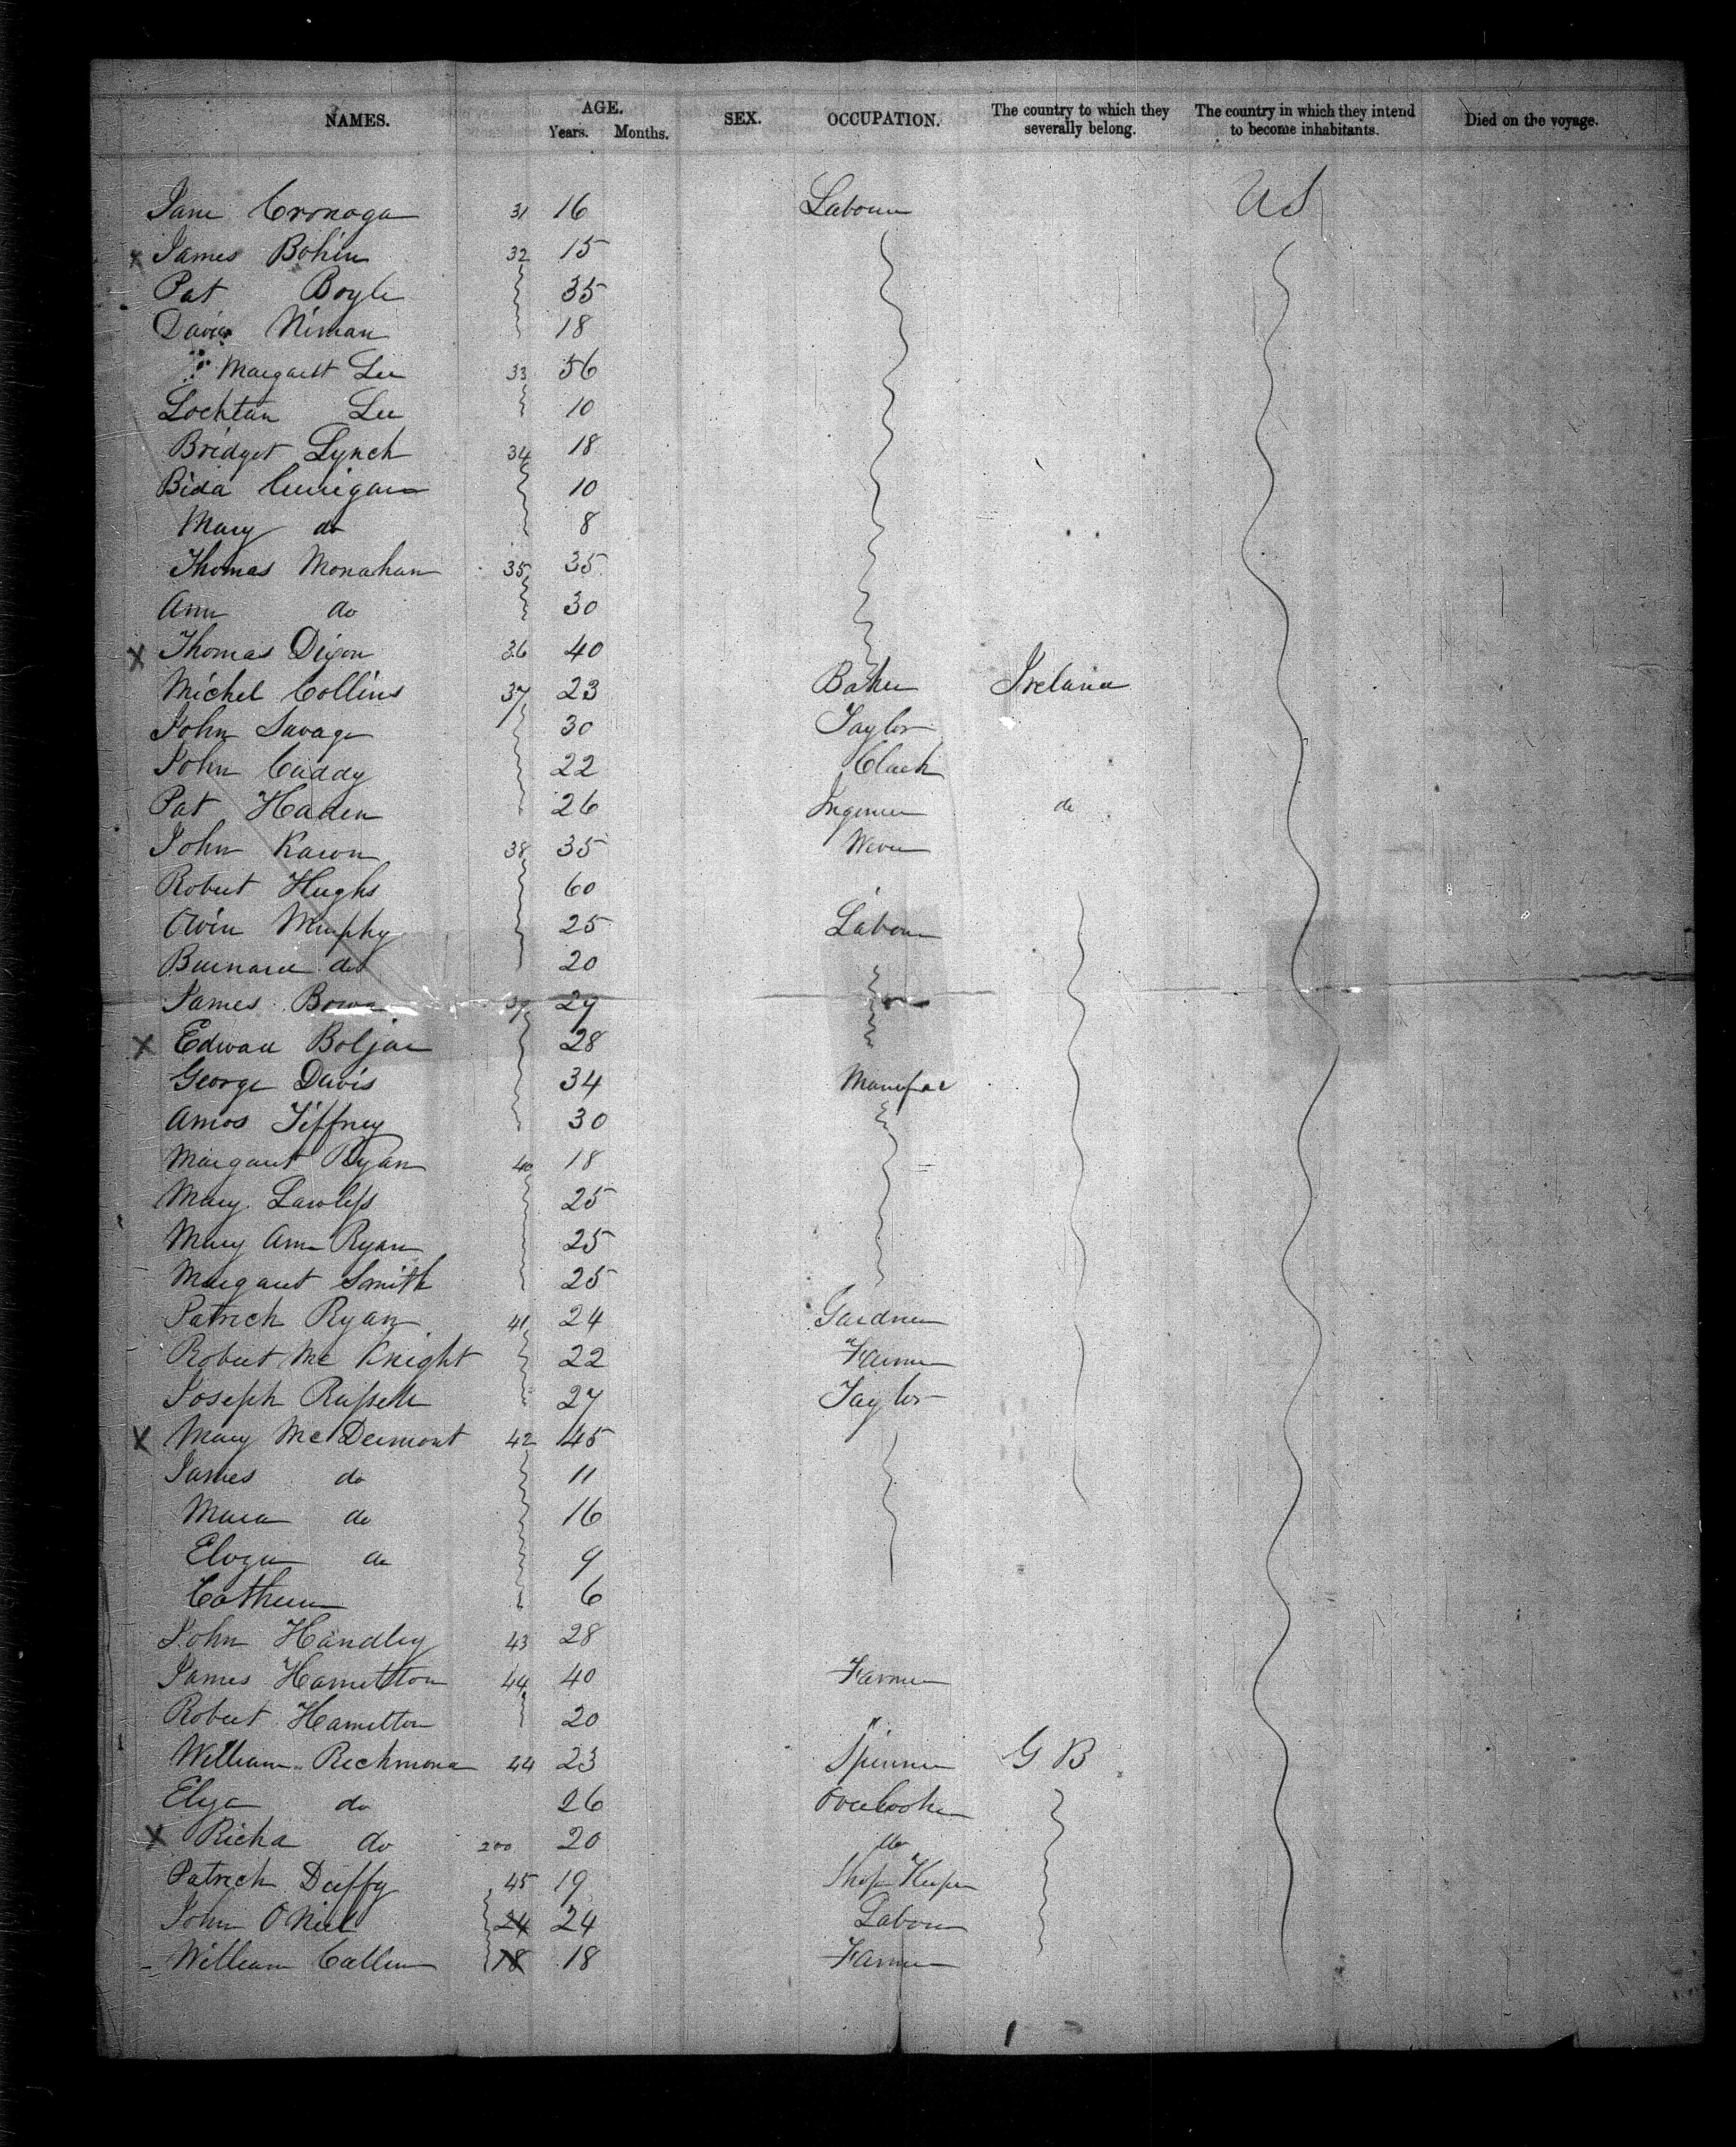 NAMES. AGE. Years. Months. SEX. OCCUPATION. The country to which they severally belong. The country in which they intend to become inhabitants. Died on the voyage.
Jane Cronoga 31 16 Labour U S
x James Bohin 32 15
Pat Boyle 35
David Niman 18
Margarett Lee 33 56
Lochlan Lee 10
Bridget Lynch 34 18
Bida 10
Mary do 8
Thomas Monahan 35 35
Ann do 30
x Thomas Dixon 36 40
Michel Collins 37 23 Baker Ireland
John Savage 30 Taylor
John Caddy 22 Clark
Pat Haden 26 Ingenier do
John 38 35 Wever
Robert Hughs 60
Owin Murphy 25 Labour
Barnard do 20
James 39 27
x Edward 28
George Davis 34 Manufac
Amos Tiffney 30
Margaret Ryan 40 18
Mary Lawless 25
Mary Ann Ryan 25
Margaret Smith 25
Patrick Ryan 41 24 Gardner
Robert Mc Knight 22 Farmer
Joseph Russell 27 Taylor
x Mary McDermont 42 45
James do 11
Maria do 16
Eliza do 9
Catherine 6
John Handley 43 28
James Hamilton 44 40 Farmer
Robert Hamilton 20 "
William Richmond 44 23 Spinner G B
Eliza do 26 Overlooker
x Richd do 200 20 do
Patrick Duffy 45 19 Shop Keeper
John O Niel 24 24 Labour
William Callen 18 18 Farmer